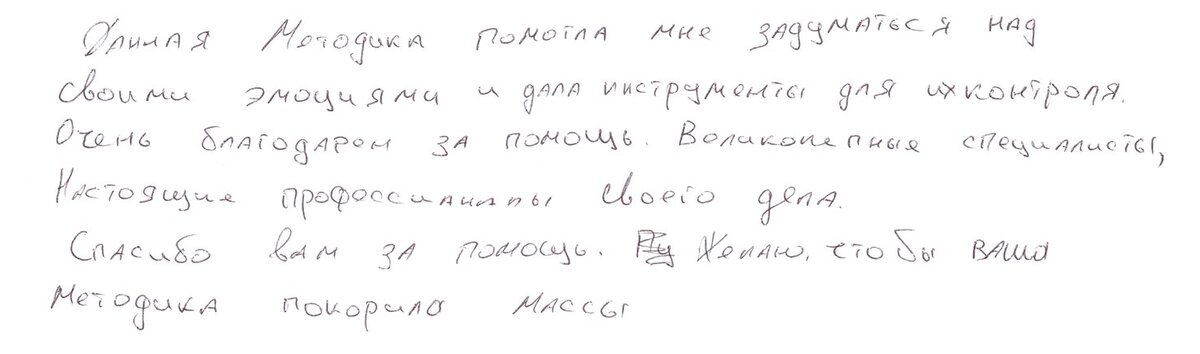 Данная Методика помогла мне задуматься над
своими эмоциями и дала инструменты для их контроля.
Очень благодарен за помощь. Великолепные специалисты,
Настоящие профессианалы своего дела.
Спасибо вам за помощь. Желаю, что бы ваша
Методика покорила массы